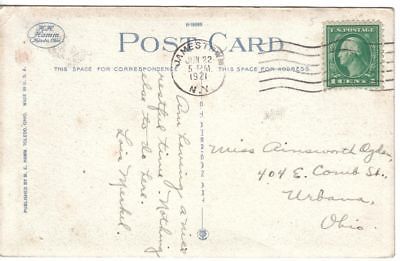 H.H.
Hamm
Toledo, Ohio
POST CARD
THIS SPACE FOR CORRESPONDENCE
THIS SPACE FOR ADDRESS.
JAMESTOWN
JUN 22
5 PM
1921
N.Y.
1 CENT 1
PUBLISHED BY H. H. HAMM, TOLEDO, OHIO.
MADE IN U. S. A.
Am having a nice
restful time. Nothing
else to do here.
Lois Merkel.
Miss Ainsworth Ogler
404 E. Comb St.,
Urbana,
Ohio.